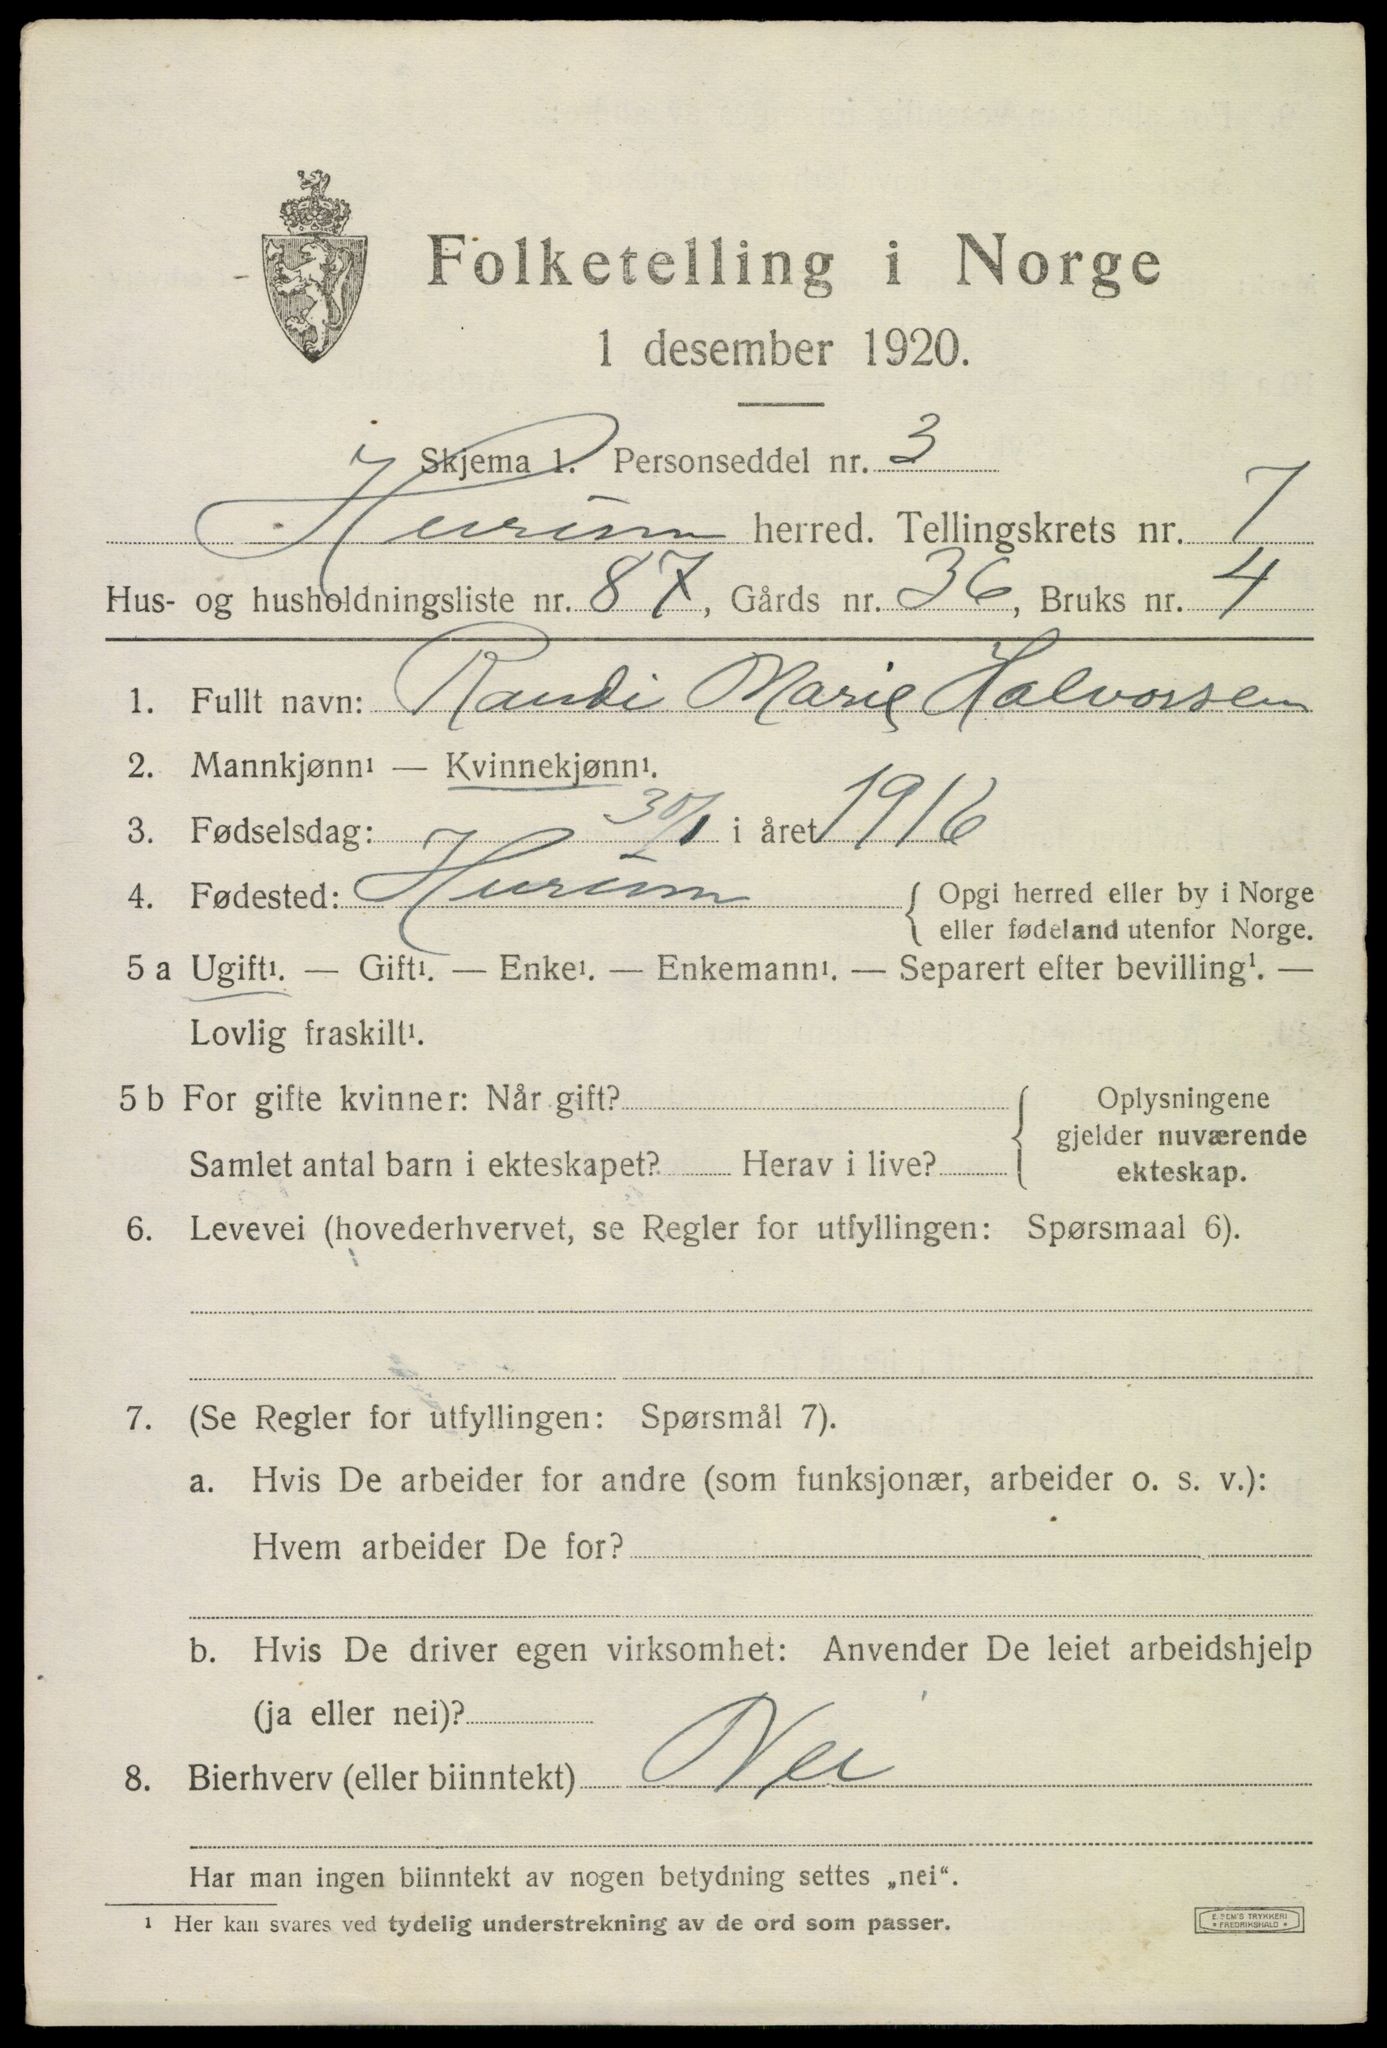 Folketelling i Norge
1 desember 1920.
Skjema 1. Personseddel nr. 3
Hurum herred. Tellingskrets nr. 7
Hus- og husholdningsliste nr. 87, Gårds nr. 36, Bruks nr. 4
1. Fullt navn: Randi Marie Halvorsen
2. Mannkjønn¹ — Kvinnekjønn¹.
3. Fødselsdag: 30/1 i året 1916
4. Fødested: Hurum { Opgi herred eller by i Norge
eller fødeland utenfor Norge.
5 a Ugift¹. — Gift¹. — Enke¹. — Enkemann¹. — Separert efter bevilling¹. —
Lovlig fraskilt¹.
5 b For gifte kvinner: Når gift? { Oplysningene
gjelder nuværende
Samlet antal barn i ekteskapet? Herav i live? ekteskap.
6. Levevei (hovederhvervet, se Regler for utfyllingen: Spørsmaal 6).
7. (Se Regler for utfyllingen: Spørsmål 7).
a. Hvis De arbeider for andre (som funksjonær, arbeider o. s. v.):
Hvem arbeider De for?
b. Hvis De driver egen virksomhet: Anvender De leiet arbeidshjelp
(ja eller nei)?
8. Bierhverv (eller biinntekt) Nei
Har man ingen biinntekt av nogen betydning settes „nei“.
¹ Her kan svares ved tydelig understrekning av de ord som passer.
E. SEM'S TRYKKERI
* FREDRIKSHALD *